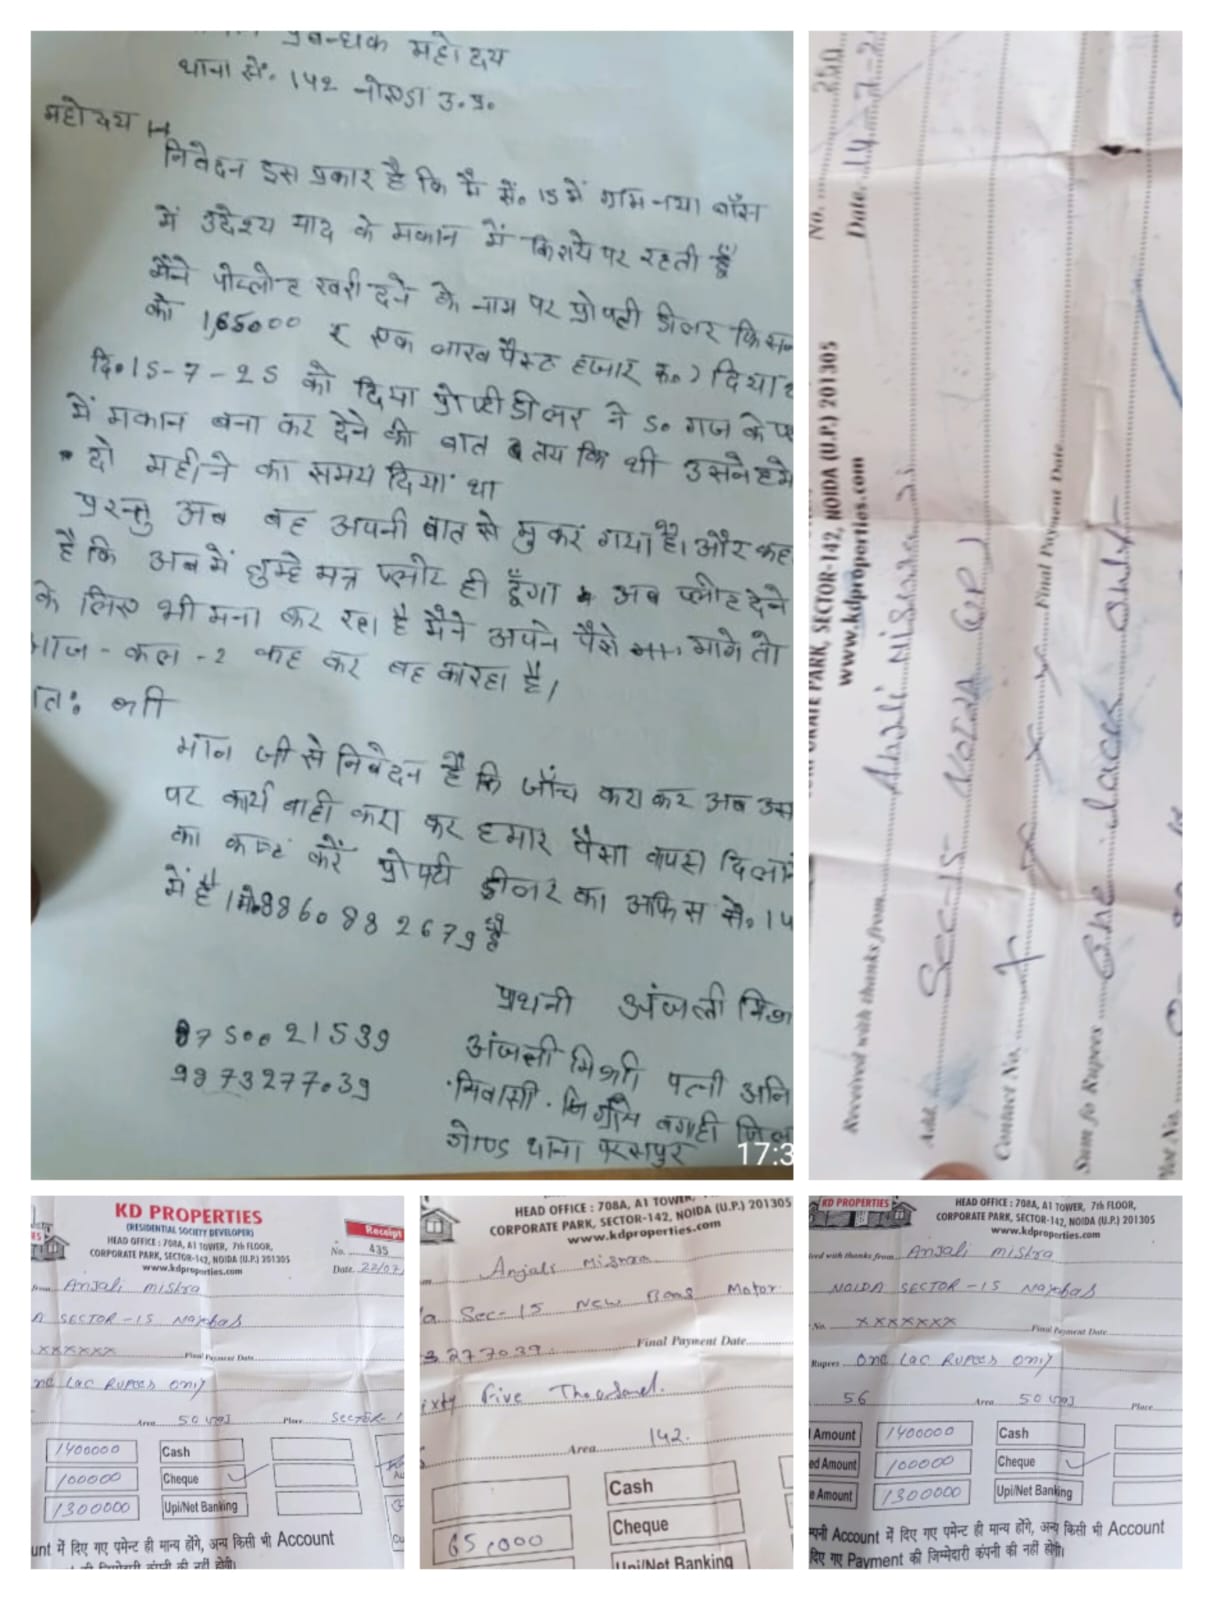 प्रबन्धक महोदय
थाना सें. 142 नोएडा उ.प्र.
महोदय
निवेदन इस प्रकार है कि मैं सें. 15 में ग्राम नया बाँस
में उदेश्य याद के मकान में किराये पर रहती हूँ
मैंने पोल्लोट खरीदने के नाम पर प्रोपर्टी डीलर
को 1,65000 र एक लाख पैंस्ट हजार रू.) दिया
दि. 15-7-25 को दिया प्रोप्टी डीलर ने 50 गज के
में मकान बना कर देने की बात तय कि थी उसने हमें
दो महीने का समय दिया था
परन्तु अब वह अपनी बात से मुकर गया है। और कह
है कि अब में तुम्हे मत्र प्लोट ही दूँगा अब प्लोट देने
के लिए भी मना कर रहा है मैंने अपने पैसे मागे तो
आज-कल-2 कह कर बहकारहा है।
मान जी से निवेदन है कि जाँच करा कर अब उस
पर कार्य वाही करा कर हमार पैसा वापस दिलाने
का कष्ट करें प्रोपर्टी डीलर का आफिस से. 14
में है। मो. 8860882679 है
प्रथनी अंजली मिश्रा
8750021539
अंजली मिश्रा पत्नी अनि
9873277039
निवासी ग्राम बगही जिला
गोण्डा थाना परसपुर
17:3
No. 250
Date. 14-7-2
PARK, SECTOR-142, NOIDA (U.P.) 201305
www.kdproperties.com
Received with thanks from
Add. Sec-15- NOIDA (UP)
Contact No. X X X X Final Payment Date
Sum fo Rupees One laces only
Plot No.
KD PROPERTIES
(RESIDENTIAL SOCIETY DEVELOPER)
HEAD OFFICE : 708A, A1 TOWER, 7th FLOOR,
CORPORATE PARK, SECTOR-142, NOIDA (U.P.) 201305
www.kdproperties.com
Receipt
No. 435
Date. 22/07/
from Anjali mishra
A SECTOR-15 Nayabas
XXXXXXX Final Payment Date
ne Lac Rupees only
Area 50 गज Place Sector-1
1400000 Cash
100000 Cheque
1300000 Upi/Net Banking
unt में दिए गए पमेन्ट ही मान्य होंगे, अन्य किसी भी Account
की जिम्मेदारी कंपनी की नहीं होगी।
HEAD OFFICE : 708A, A1 TOWER,
CORPORATE PARK, SECTOR-142, NOIDA (U.P.) 201305
www.kdproperties.com
Anjali Mishra
a Sec-15 New Bans Motor
3277039 Final Payment Date
ixty five Thousand.
Area 142.
Cash
65,000 Cheque
Upi/Net Banking
KD PROPERTIES
HEAD OFFICE : 708A, A1 TOWER, 7th FLOOR,
CORPORATE PARK, SECTOR-142, NOIDA (U.P.) 201305
www.kdproperties.com
ived with thanks from Anjali mishra
NOIDA SECTOR-15 Nayabas
No. XXXXXXX Final Payment Date
Rupees One Lac Rupees only
56 Area 50 गज Place
Amount 1400000 Cash
ed Amount 100000 Cheque
e Amount 1300000 Upi/Net Banking
म्पनी Account में दिए गए पमेन्ट ही मान्य होंगे, अन्य किसी भी Account
दिए गए Payment की जिम्मेदारी कंपनी की नहीं होगी।